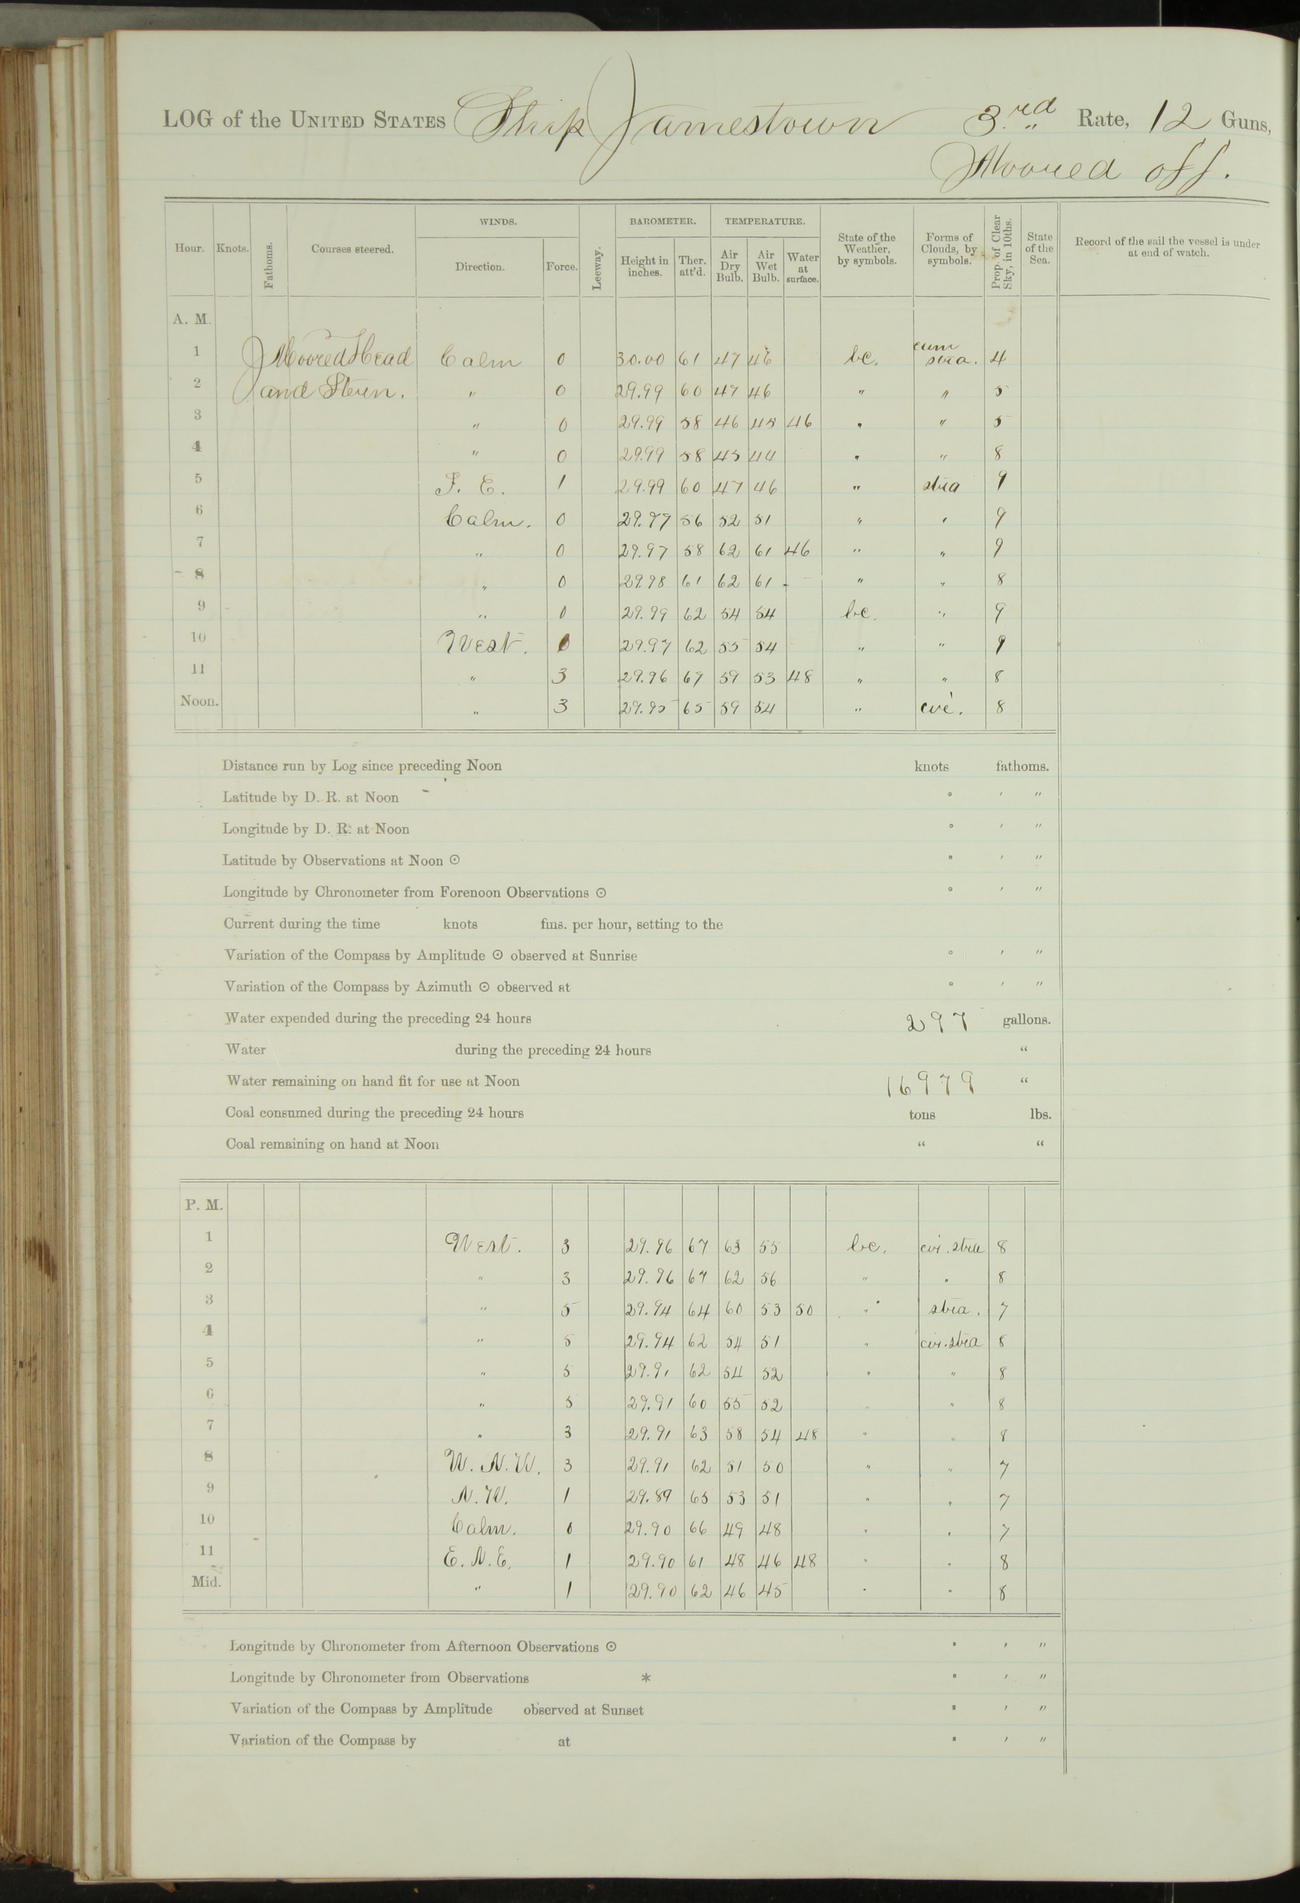 LOG of the UNITED STATES Ship Jamestown 3.rd Rate, 12 Guns,
Moored off.
Hour. Knots. Fathoms. Courses steered. WINDS. Direction. Force. Leeway. BAROMETER. Height in inches. Ther. att'd. TEMPERATURE. Air Dry Bulb. Air Wet Bulb. Water at surface. State of the Weather, by symbols. Forms of Clouds, by symbols. Prop. of Clear Sky, in 10ths. State of the Sea. Record of the sail the vessel is under at end of watch.
A. M.
1 Moored Head Calm 0 30.00 61 47 46 bc. cum stra. 4
2 and Stern. " 0 29.99 60 47 46 " " 5
3 " 0 29.99 58 46 45 46 " " 5
4 " 0 29.99 58 45 44 " " 8
5 S. E. 1 29.99 60 47 46 " stra 9
6 Calm. 0 29.97 56 52 51 " " 9
7 " 0 29.97 58 62 61 46 " " 9
8 " 0 29.98 61 62 61 " " 8
9 " 0 29.99 62 54 54 bc. " 9
10 West. 29.97 62 55 54 " " 9
11 " 3 29.96 67 59 53 48 " " 8
Noon. " 3 29.95 65 59 54 " cir. 8
Distance run by Log since preceding Noon knots fathoms.
Latitude by D. R. at Noon ° ′ ″
Longitude by D. R. at Noon ° ′ ″
Latitude by Observations at Noon ☉ ° ′ ″
Longitude by Chronometer from Forenoon Observations ☉ ° ′ ″
Current during the time knots fms. per hour, setting to the
Variation of the Compass by Amplitude ☉ observed at Sunrise ° ′ ″
Variation of the Compass by Azimuth ☉ observed at ° ′ ″
Water expended during the preceding 24 hours 297 gallons.
Water during the preceding 24 hours “
Water remaining on hand fit for use at Noon 16979 “
Coal consumed during the preceding 24 hours tons lbs.
Coal remaining on hand at Noon “ “
P. M.
1 West. 3 29.96 67 63 55 bc. cir. stra 8
2 " 3 29.96 67 62 56 " " 8
3 " 5 29.94 64 60 53 50 " stra. 7
4 " 5 29.94 62 54 51 " cir. stra 8
5 " 5 29.91 62 54 52 " " 8
6 " 5 29.91 60 55 52 " " 8
7 " 3 29.91 63 58 54 48 " " 8
8 W. N. W. 3 29.91 62 51 50 " " 7
9 N. W. 1 29.89 65 53 51 " " 7
10 Calm. 0 29.90 66 49 48 " " 7
11 E. N. E. 1 29.90 61 48 46 48 " " 8
Mid. " 1 29.90 62 46 45 " " 8
Longitude by Chronometer from Afternoon Observations ☉ ° ′ ″
Longitude by Chronometer from Observations * ° ′ ″
Variation of the Compass by Amplitude observed at Sunset ° ′ ″
Variation of the Compass by at ° ′ ″